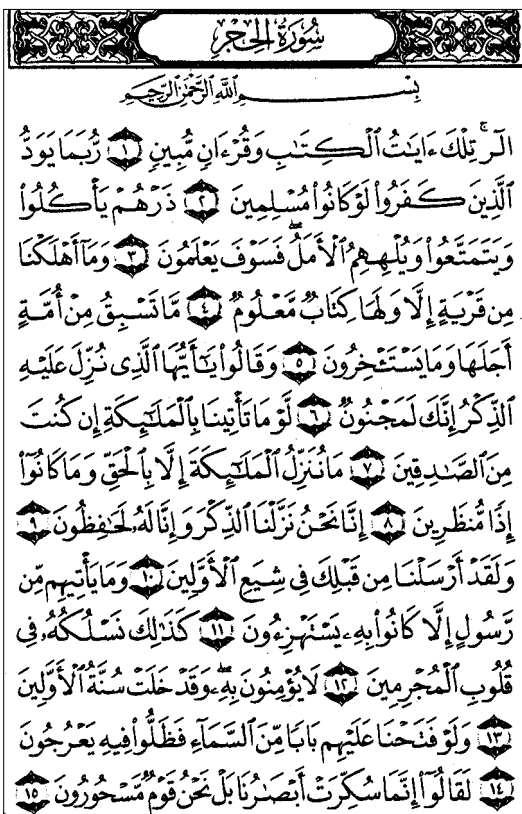 سُورَةُ الحِجْرِ
بِسْمِ ٱللَّهِ ٱلرَّحْمَٰنِ ٱلرَّحِيمِ
الٓر ۚ تِلْكَ ءَايَٰتُ ٱلْكِتَٰبِ وَقُرْءَانٍ مُّبِينٍ ١ رُّبَمَا يَوَدُّ
ٱلَّذِينَ كَفَرُوا۟ لَوْ كَانُوا۟ مُسْلِمِينَ ٢ ذَرْهُمْ يَأْكُلُوا۟
وَيَتَمَتَّعُوا۟ وَيُلْهِهِمُ ٱلْأَمَلُ ۖ فَسَوْفَ يَعْلَمُونَ ٣ وَمَآ أَهْلَكْنَا
مِن قَرْيَةٍ إِلَّا وَلَهَا كِتَابٌ مَّعْلُومٌ ٤ مَّا تَسْبِقُ مِنْ أُمَّةٍ
أَجَلَهَا وَمَا يَسْتَـْٔخِرُونَ ٥ وَقَالُوا۟ يَٰٓأَيُّهَا ٱلَّذِى نُزِّلَ عَلَيْهِ
ٱلذِّكْرُ إِنَّكَ لَمَجْنُونٌ ٦ لَّوْ مَا تَأْتِينَا بِٱلْمَلَٰٓئِكَةِ إِن كُنتَ
مِنَ ٱلصَّٰدِقِينَ ٧ مَا نُنَزِّلُ ٱلْمَلَٰٓئِكَةَ إِلَّا بِٱلْحَقِّ وَمَا كَانُوٓا۟
إِذًا مُّنظَرِينَ ٨ إِنَّا نَحْنُ نَزَّلْنَا ٱلذِّكْرَ وَإِنَّا لَهُۥ لَحَٰفِظُونَ ٩
وَلَقَدْ أَرْسَلْنَا مِن قَبْلِكَ فِى شِيَعِ ٱلْأَوَّلِينَ ١٠ وَمَا يَأْتِيهِم مِّن
رَّسُولٍ إِلَّا كَانُوا۟ بِهِۦ يَسْتَهْزِءُونَ ١١ كَذَٰلِكَ نَسْلُكُهُۥ فِى
قُلُوبِ ٱلْمُجْرِمِينَ ١٢ لَا يُؤْمِنُونَ بِهِۦ ۖ وَقَدْ خَلَتْ سُنَّةُ ٱلْأَوَّلِينَ
١٣ وَلَوْ فَتَحْنَا عَلَيْهِم بَابًا مِّنَ ٱلسَّمَآءِ فَظَلُّوا۟ فِيهِ يَعْرُجُونَ
١٤ لَقَالُوٓا۟ إِنَّمَا سُكِّرَتْ أَبْصَٰرُنَا بَلْ نَحْنُ قَوْمٌ مَّسْحُورُونَ ١٥